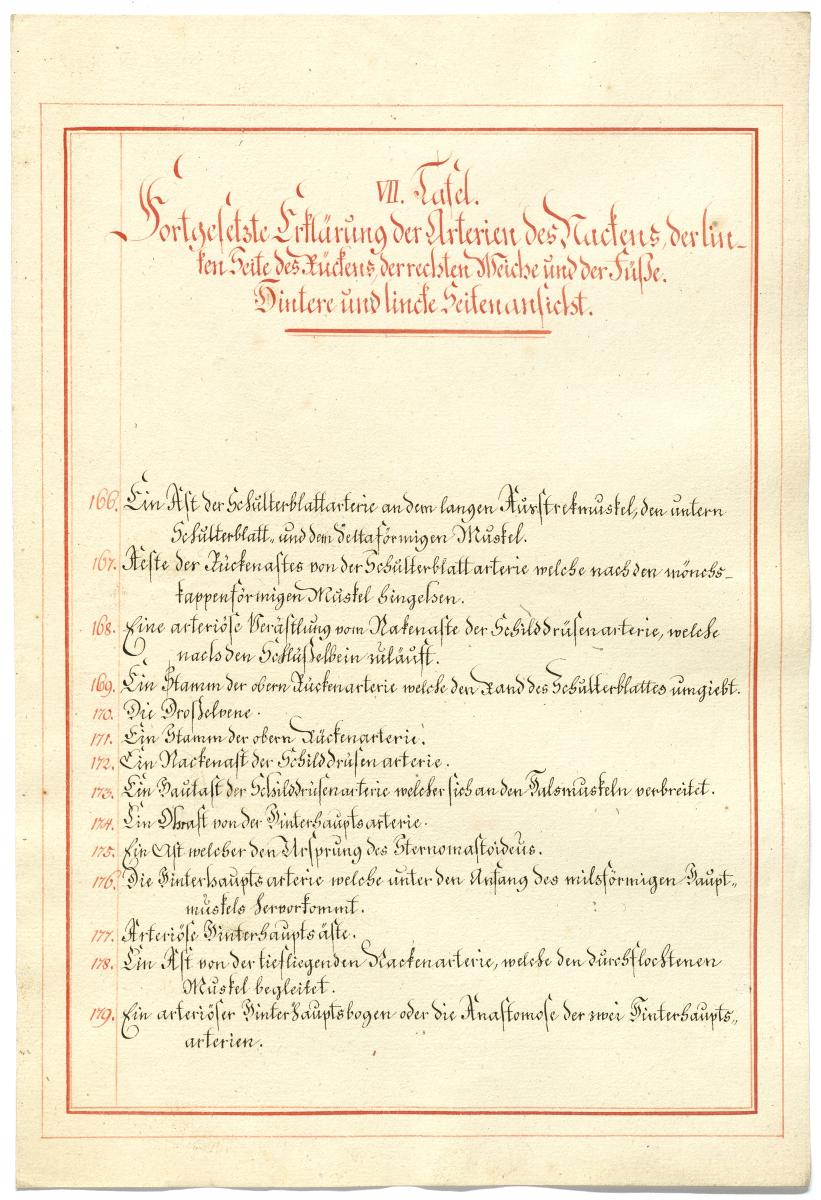 VII. Tafel.
Fortgesetzte Erklärung der Arterien des Nackens, der lin-
ken Seite des Rückens, der rechten Weiche und der Füße.
Hintere und lincke Seitenansicht.
166. Ein Ast der Schulterblattarterie an dem langen Ausstrekmuskel, den untern
Schulterblatt- und dem deltaförmigen Muskel.
167. Aeste der Rückenastes von der Schulterblattarterie welche nach den mönchs-
kappenförmigen Muskel hingehen.
168. Eine arteriöse Verästlung vom Nakenaste der Schilddrüsenarterie, welche
nach den Schlüßelbein zuläuft.
169. Ein Stamm der obern Rückenarterie welche den Rand des Schulterblattes umgiebt.
170. Die Droßelvene.
171. Ein Stamm der obern Rückenarterie.
172. Ein Nackenast der Schilddrüsenarterie.
173. Ein Hautast der Schilddrüsenarterie welcher sich an den Halsmuskeln verbreitet.
174. Ein Ohrast von der Hinterhauptsarterie.
175. Ein Ast welcher den Ursprung des Sternomastoideus.
176. Die Hinterhauptsarterie welche unter den Anfang des milzförmigen Haupt-
muskels hervorkommt.
177. Arteriöse Hinterhauptsäste.
178. Ein Ast von der tiefliegenden Nackenarterie, welche den durchflochtenen
Muskel begleitet.
179. Ein arteriöser Hinterhauptsbogen oder die Anastomose der zwei Hinterhaupts-
arterien.